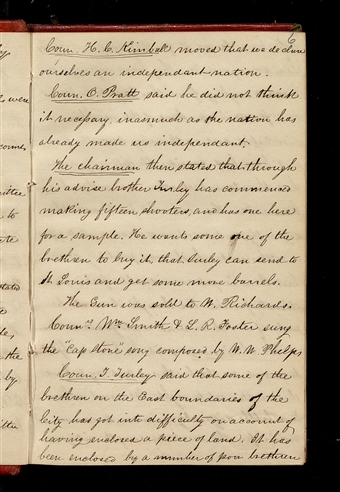 6
Coun. H. C. Kimball moves that we declare
ourselves an independant nation.
Coun. O. Pratt said he did not think
it necessary, inasmuch as the nation has
already made us independant.
The chairman then stated that through
his advise brother Turley has commenced
making fifteen shooters, and has one here
for a sample. He wants some one of the
brethren to buy it that Turley can send to
St. Louis and get some more barrels.
The Gun was sold to W. Richards.
Counrs. Wm Smith & L. R. Foster sung
the "Cap Stone" song composed by W. W. Phelps
Coun. T. Turley said that some of the
brethren on the East boundaries of the
City has got into difficulty on account of
having enclosed a peice of land. It has
been enclosed by a number of poor brethren